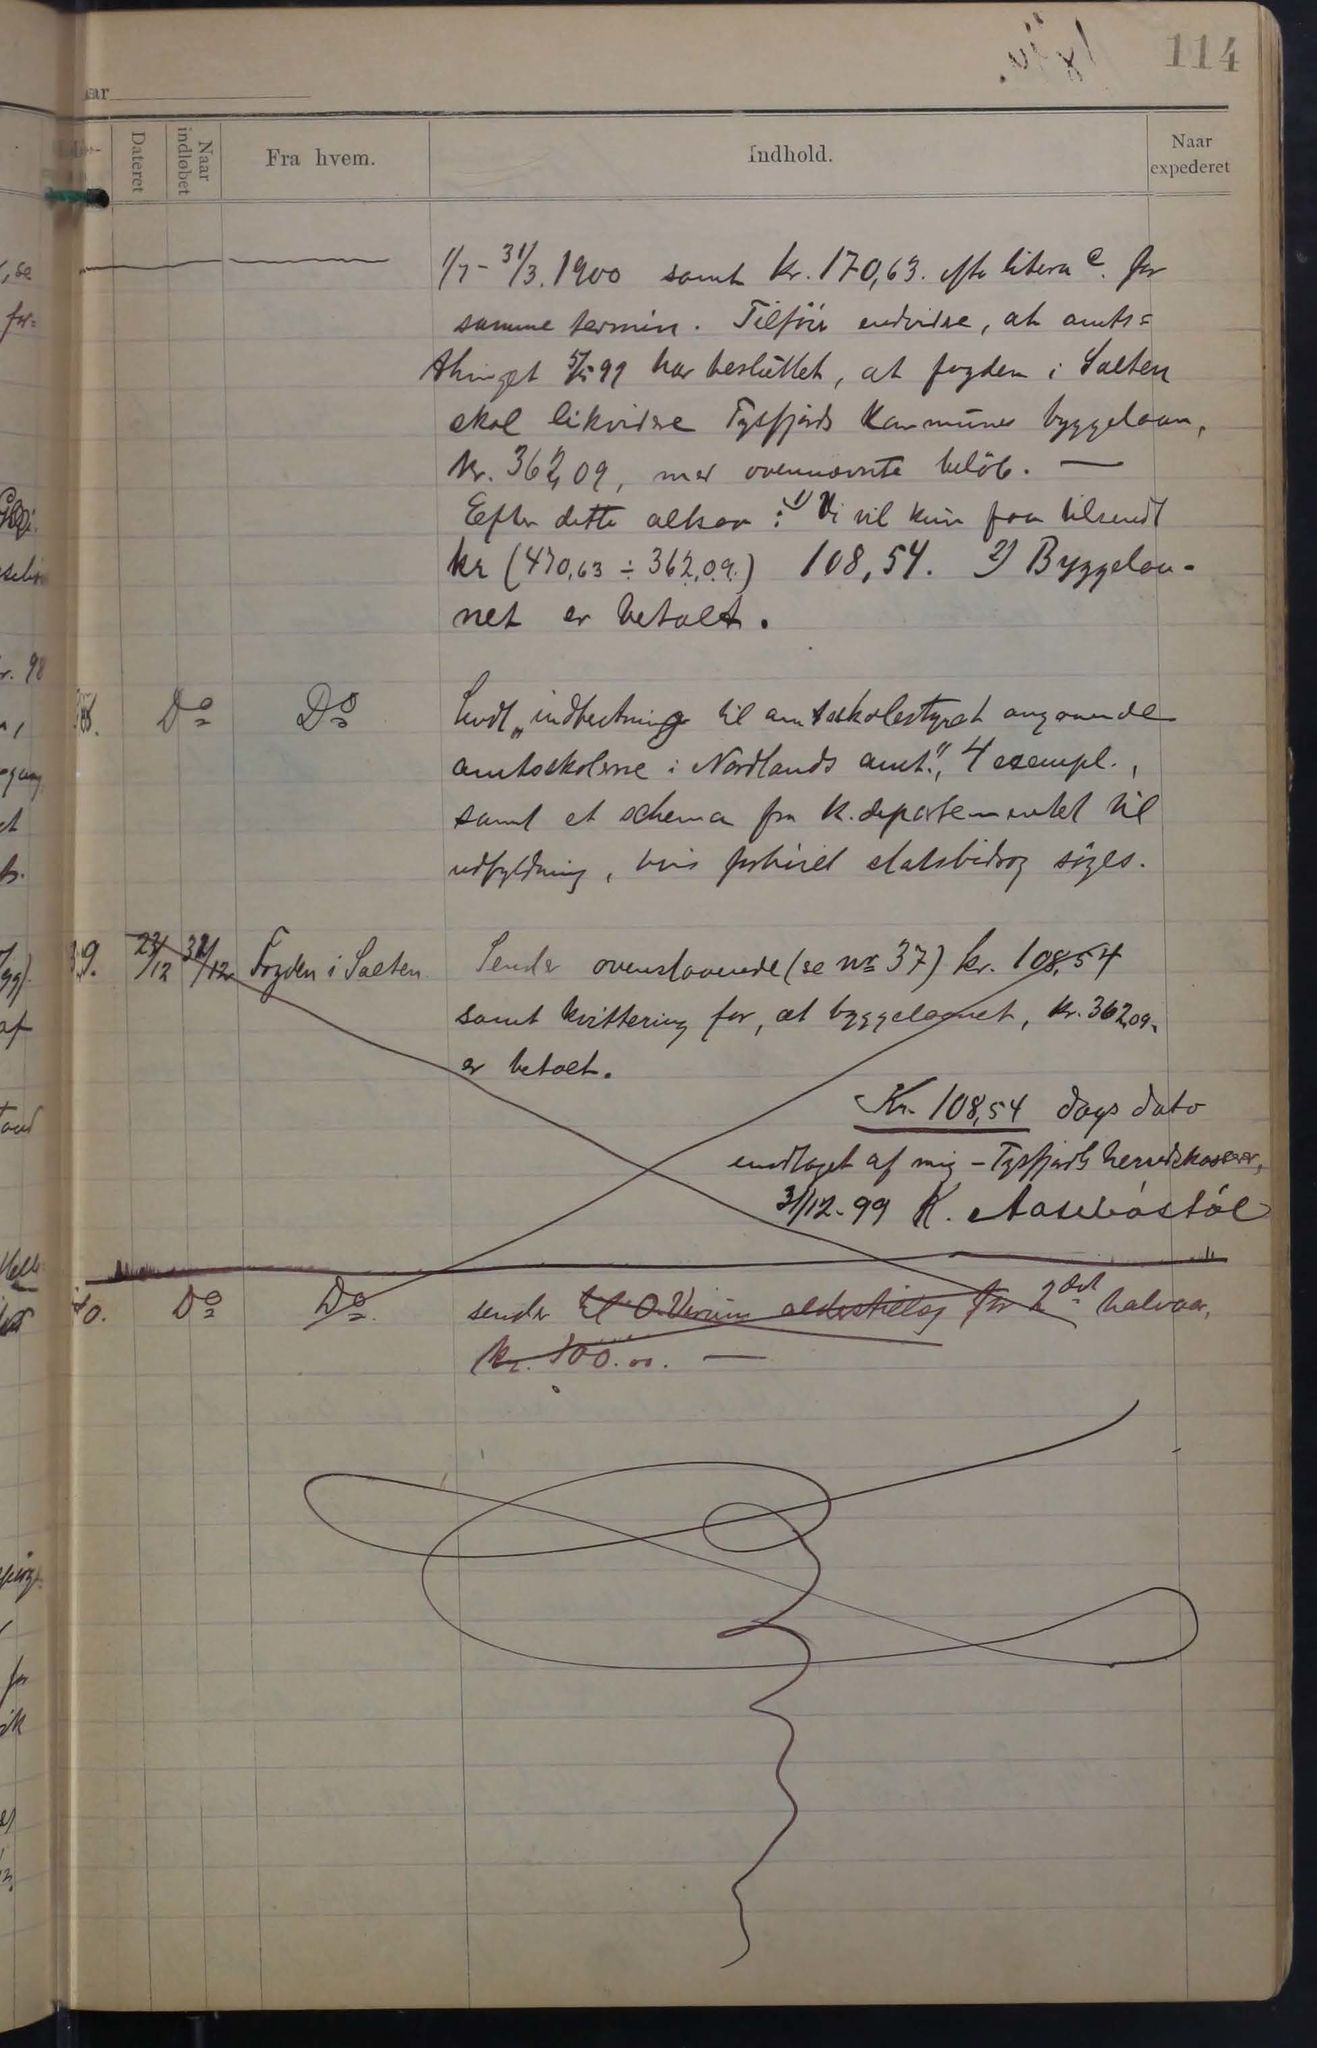 114
aar
Dateret
Naar indløbet
Fra hvem.
Indhold.
Naar expederet
1/7 - 31/3. 1900 samt kr. 170,63. efter litera c. for
samme termin. Tilföier endvidere, at amts=
thinget 5/5 99 har besluttet, at fogden i Salten
skal likvidere Tysfjords kommunes byggelaan,
kr. 362,09, med ovennævnte beløb. —
Efter dette altsaa: 1) Vi vil kun faa tilsendt
kr (470,63 ÷ 362,09.) 108,54. 2) Byggelaa-
net er betalt.
38. Do Do Sendt „indberetning til amtsskolestyret angaaende
amtsskolerne i Nordlands amt", 4 exempl.,
samt et schema fra k.departementet til
udfyldning, hvis fortsat statsbidrag söges.
39. 23/12 31/12 Fogden i Salten. Sender ovenstaaende (se no 37) kr. 108,54
samt kvittering for, at byggelaanet, kr. 362,09,
er betalt.
Kr. 108,54 dags dato
modtaget af mig - Tysfjords herredskasserer,
31/12-99 K. Aaseböstöl
40. Do Do sender til O. Verum alderstillæg for 2det halvaar,
kr. 100.00. —